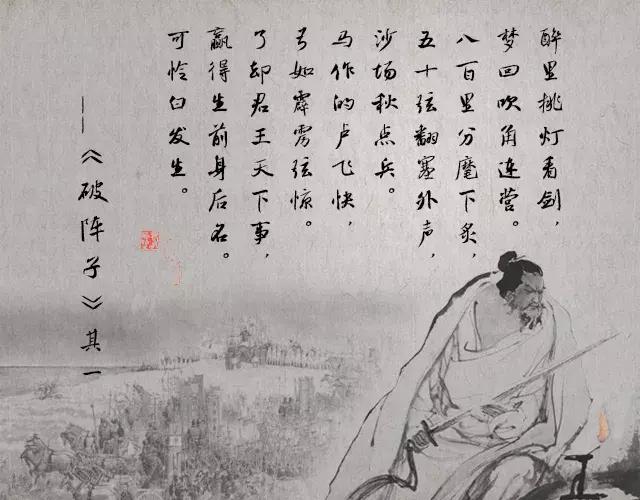 醉里挑灯看剑，
梦回吹角连营。
八百里分麾下炙，
五十弦翻塞外声，
沙场秋点兵。
马作的卢飞快，
弓如霹雳弦惊。
了却君王天下事，
赢得生前身后名。
可怜白发生。
——《破阵子》其一